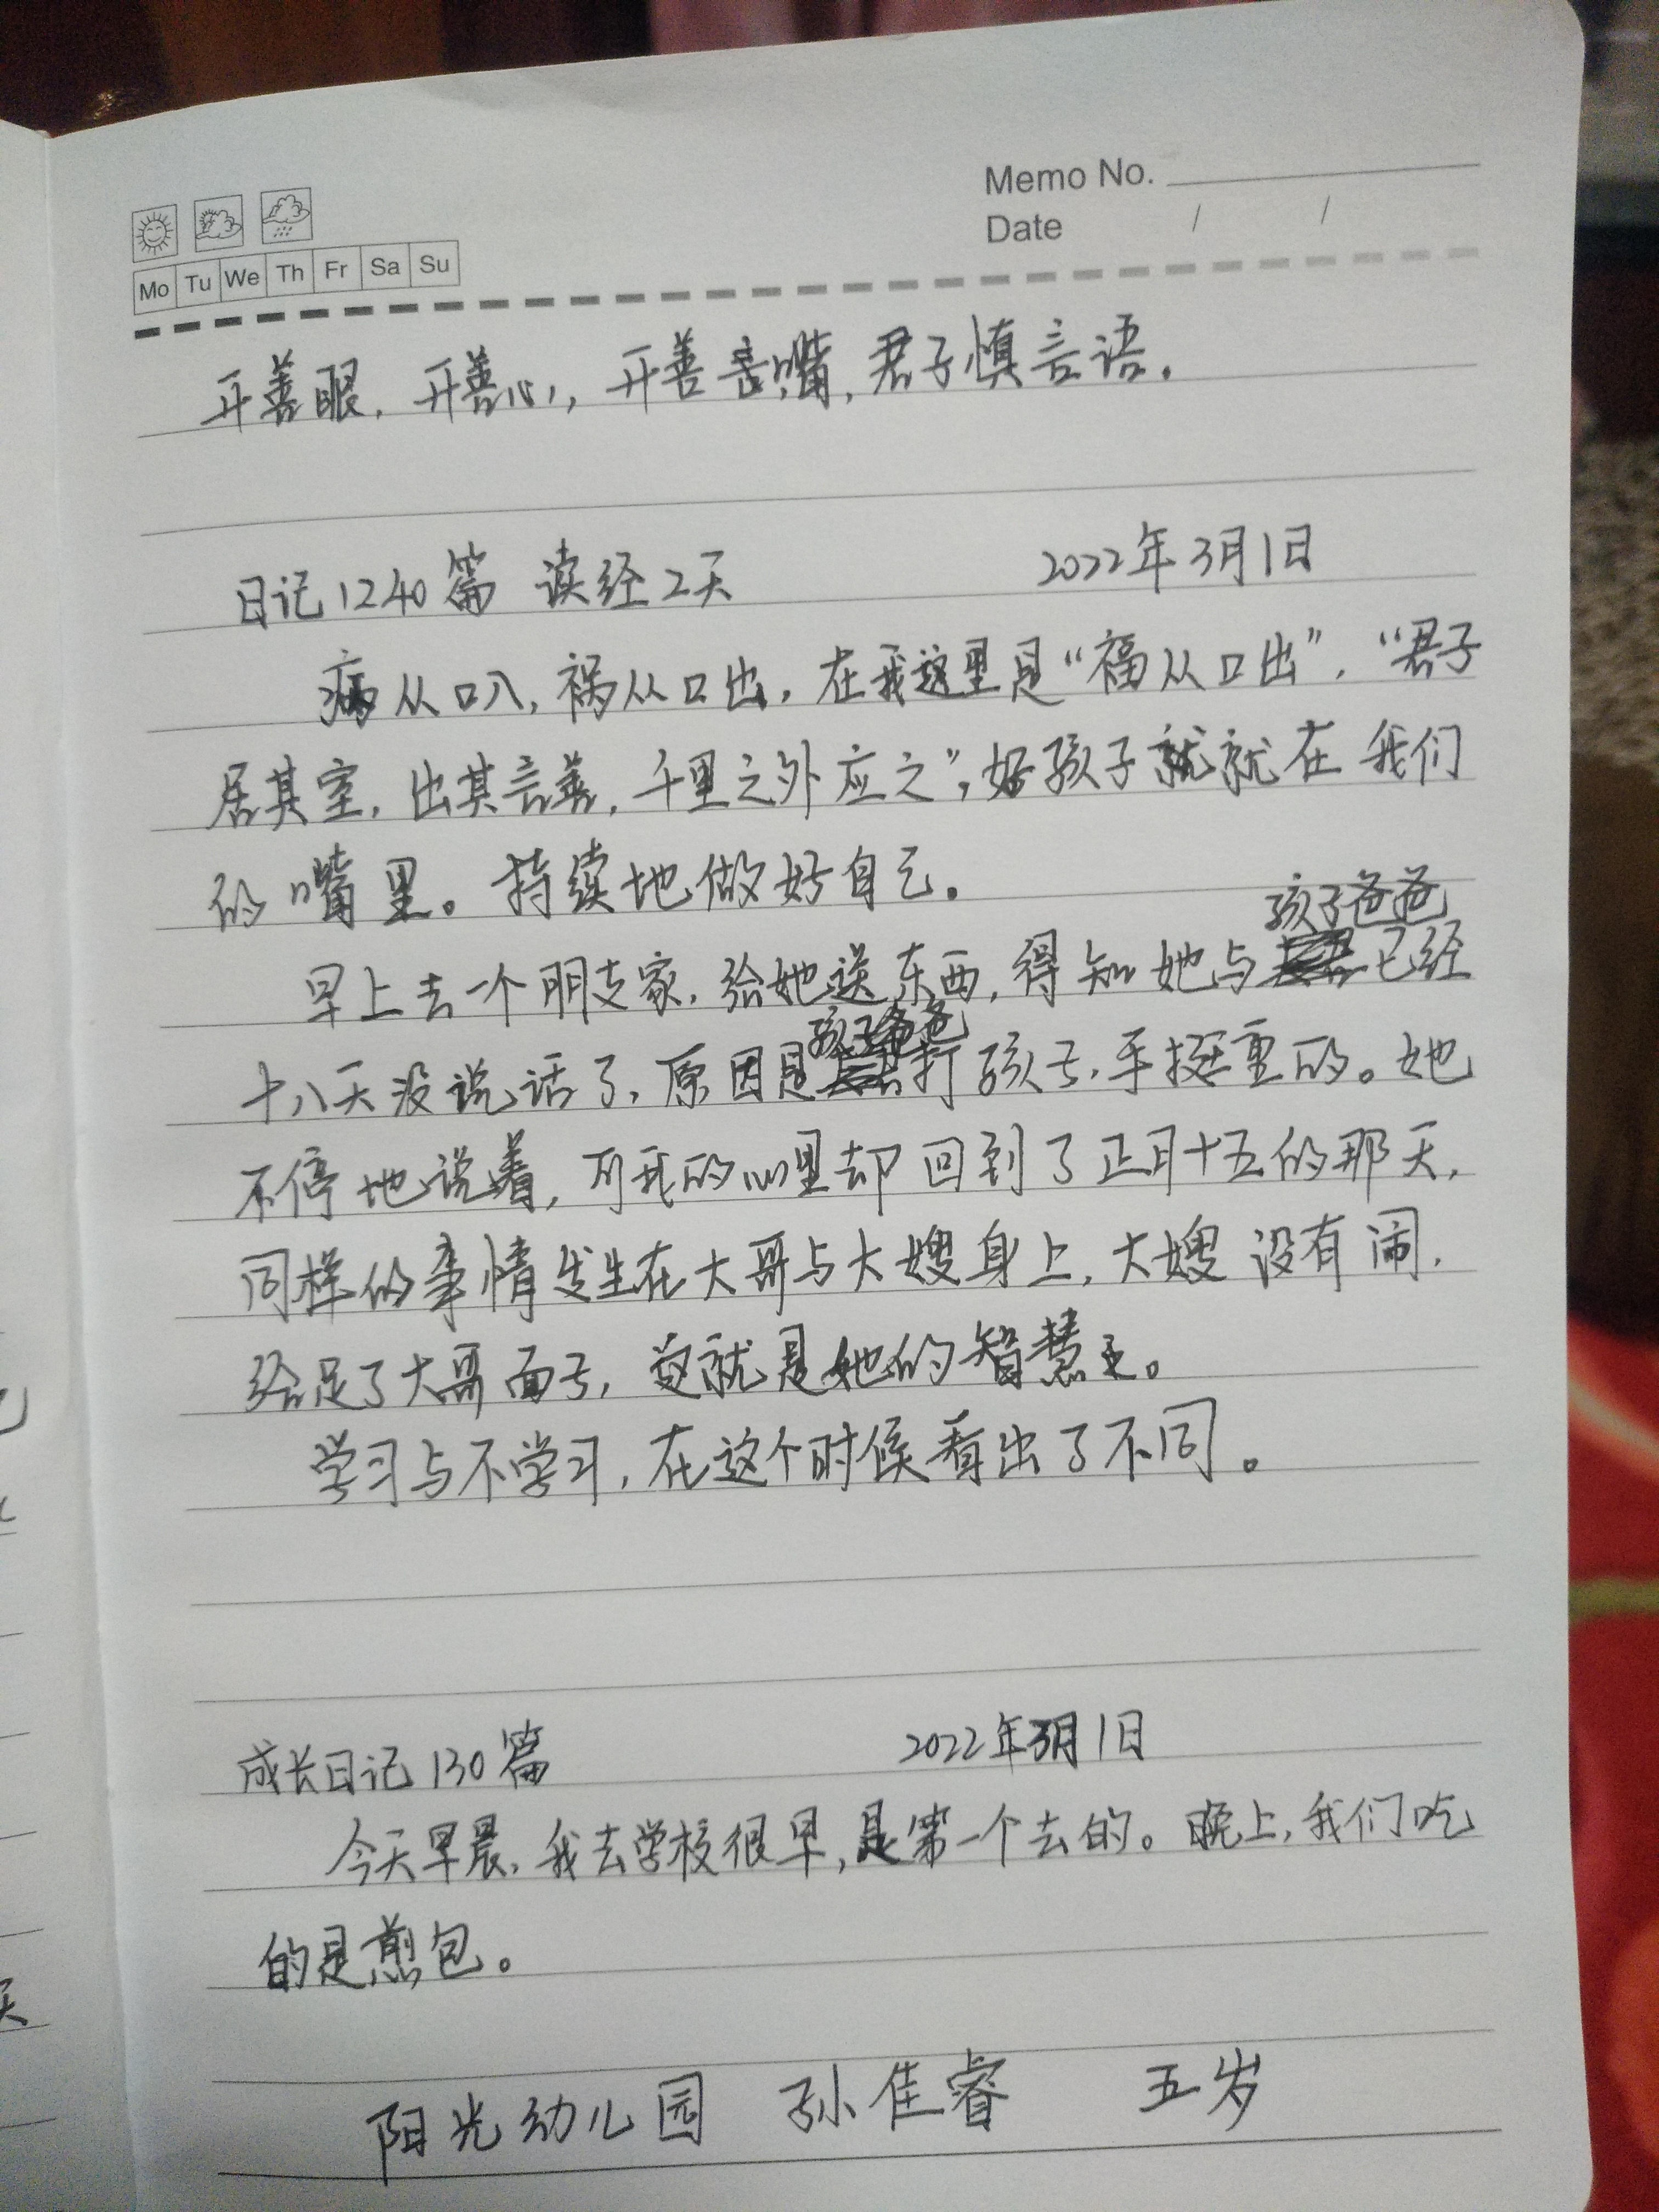 Memo No.
Date / /
Mo Tu We Th Fr Sa Su
开善眼，开善心，开善善嘴，君子慎言语。
日记1240篇 读经2天 2022年3月1日
病从口入，祸从口出，在我这里是“福从口出”，“君子
居其室，出其言善，千里之外应之”，好孩子就就在我们
的嘴里。持续地做好自己。
早上去一个朋友家，给她送东西，得知她与孩子爸爸已经
十八天没说话了，原因是孩子爸爸打孩子，手挺重的。她
不停地说着，可我的心里却回到了正月十五的那天，
同样的事情发生在大哥与大嫂身上，大嫂没有闹，
给足了大哥面子，这就是她的智慧之。
学习与不学习，在这个时候看出了不同。
成长日记130篇 2022年3月1日
今天早晨，我去学校很早，是第一个去的。晚上，我们吃
的是煎包。
阳光幼儿园 孙佳睿 五岁